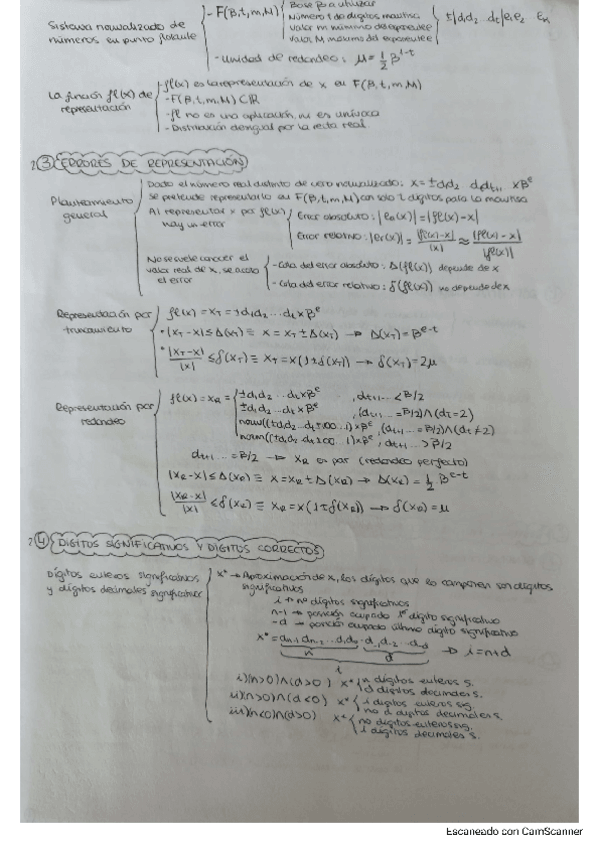 Base β a utilizar
- F(β,t,m,M) Número t de dígitos mantisa ± d1d2 dt|e1e2 en
Sistema normalizado de números en punto flotante
Valor m mínimo del exponente
Valor M máximo del exponente
- Unidad de redondeo: μ = 1/2 β^(1-t)
La función fl(x) de representación
- fl(x) es la representación de x en F(β,t,m,M)
- F(β,t,m,M) ⊂ ℝ
- fl no es una aplicación, es unívoca
- Distribución desigual por la recta real
③ ERRORES DE REPRESENTACIÓN
Planteamiento general
Dado el número real distinto de cero normalizado: x = ±d1d2 dtdt+1 xβ^e
se pretende representarlo en F(β,t,m,M) con solo t dígitos para la mantisa
Al representar x por fl(x) hay un error
Error absoluto: |ea(x)| = |fl(x)-x|
Error relativo: |er(x)| = |fl(x)-x|/|x| ≈ |fl(x)-x|/|fl(x)|
No se suele conocer el valor real de x, se acota el error
- Cota del error absoluto: Δ(fl(x)) depende de x
- Cota del error relativo: δ(fl(x)) no depende de x
Representación por truncamiento
fl(x) = xT = ±d1d2...dt xβ^e
• |xT-x| ≤ Δ(xT) ≡ x = xT ± Δ(xT) → Δ(xT) = β^(e-t)
• |xT-x|/|x| ≤ δ(xT) ≡ xT = x(1±δ(xT)) → δ(xT) = 2μ
Representación por redondeo
fl(x) = xR =
±d1d2 ...dt xβ^e , dt+1... < β/2
±d1d2 ...dt xβ^e , (dt+1 ... = β/2)∧(dt=2)
norm((±d1d2 dt±00...1)xβ^e , (dt+1 ... = β/2)∧(dt≠2)
norm((±d1d2 dt±00...1)xβ^e , dt+1... > β/2
dt+1... = β/2 → xR es par (redondeo perfecto)
|xR-x| ≤ Δ(xR) ≡ x = xR ± Δ(xR) → Δ(xR) = 1/2 β^(e-t)
|xR-x|/|x| < δ(xR) ≡ xR = x(1±δ(xR)) → δ(xR) = μ
④ DIGITOS SIGNIFICATIVOS Y DIGITOS CORRECTOS
Dígitos enteros significativos y dígitos decimales significativos
x* → Aproximación de x, los dígitos que lo componen son dígitos significativos
i → nº dígitos significativos
n-1 → posición ocupada 1er dígito significativo
-d → posición ocupada último dígito significativo
x* = dn-1 dn-2 ...d1d0 · d-1d-2 ... d-d → i = n+d
n d
i
i) (n>0)∧(d>0) x* { n dígitos enteros s.
d dígitos decimales s.
ii) (n>0)∧(d<0) x* { i dígitos enteros sig.
no d dígitos decimales s.
iii) (n<0)∧(d>0) x* { no dígitos enteros sig.
i dígitos decimales s.
Escaneado con CamScanner